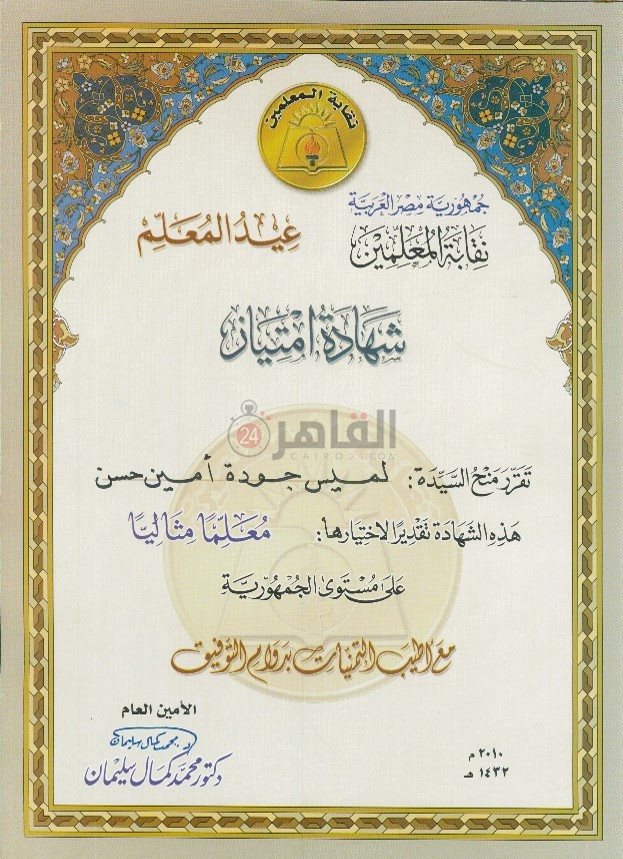 نقابة المعلمين
جُمهُورية مصر العربية
نِقَابَة المُعَلِّمِين
عِيدُ المُعَلِّم
شَهَادَةُ امْتِيَاز
القاهرة 24
CAIRO24.COM
تَقَرَّرَ مَنْحُ السَّيِّدَة: لميس جودة أمين حسن
هَذِهِ الشَّهَادَة تَقْدِيرًا لاخْتِيَارِهَا: مُعَلِّمًا مِثَالِيًّا
عَلَى مُسْتَوَى الجُمْهُورِيَّة
مَعَ أطيَبِ التمنيات بدَوَامِ التَّوفِيق
الأمين العام
د. محمد كمال سليمان
دكتور محمد كمال سليمان
٢٠١٠ م
١٤٣٢ هـ